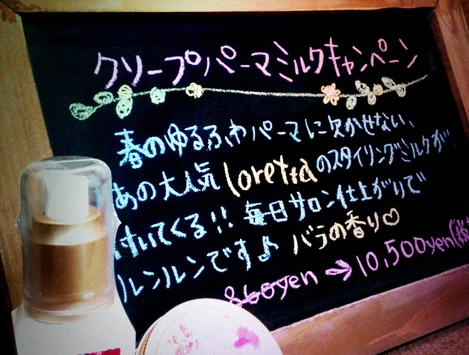 クリープパーマミルクキャンペーン
春のゆるふわパーマに欠かせない、
あの大人気lorettaのスタイリングミルクが
付いてくる!! 毎日サロン仕上がりで
ルンルンです♪ バラの香り♡
860yen→10,500yen